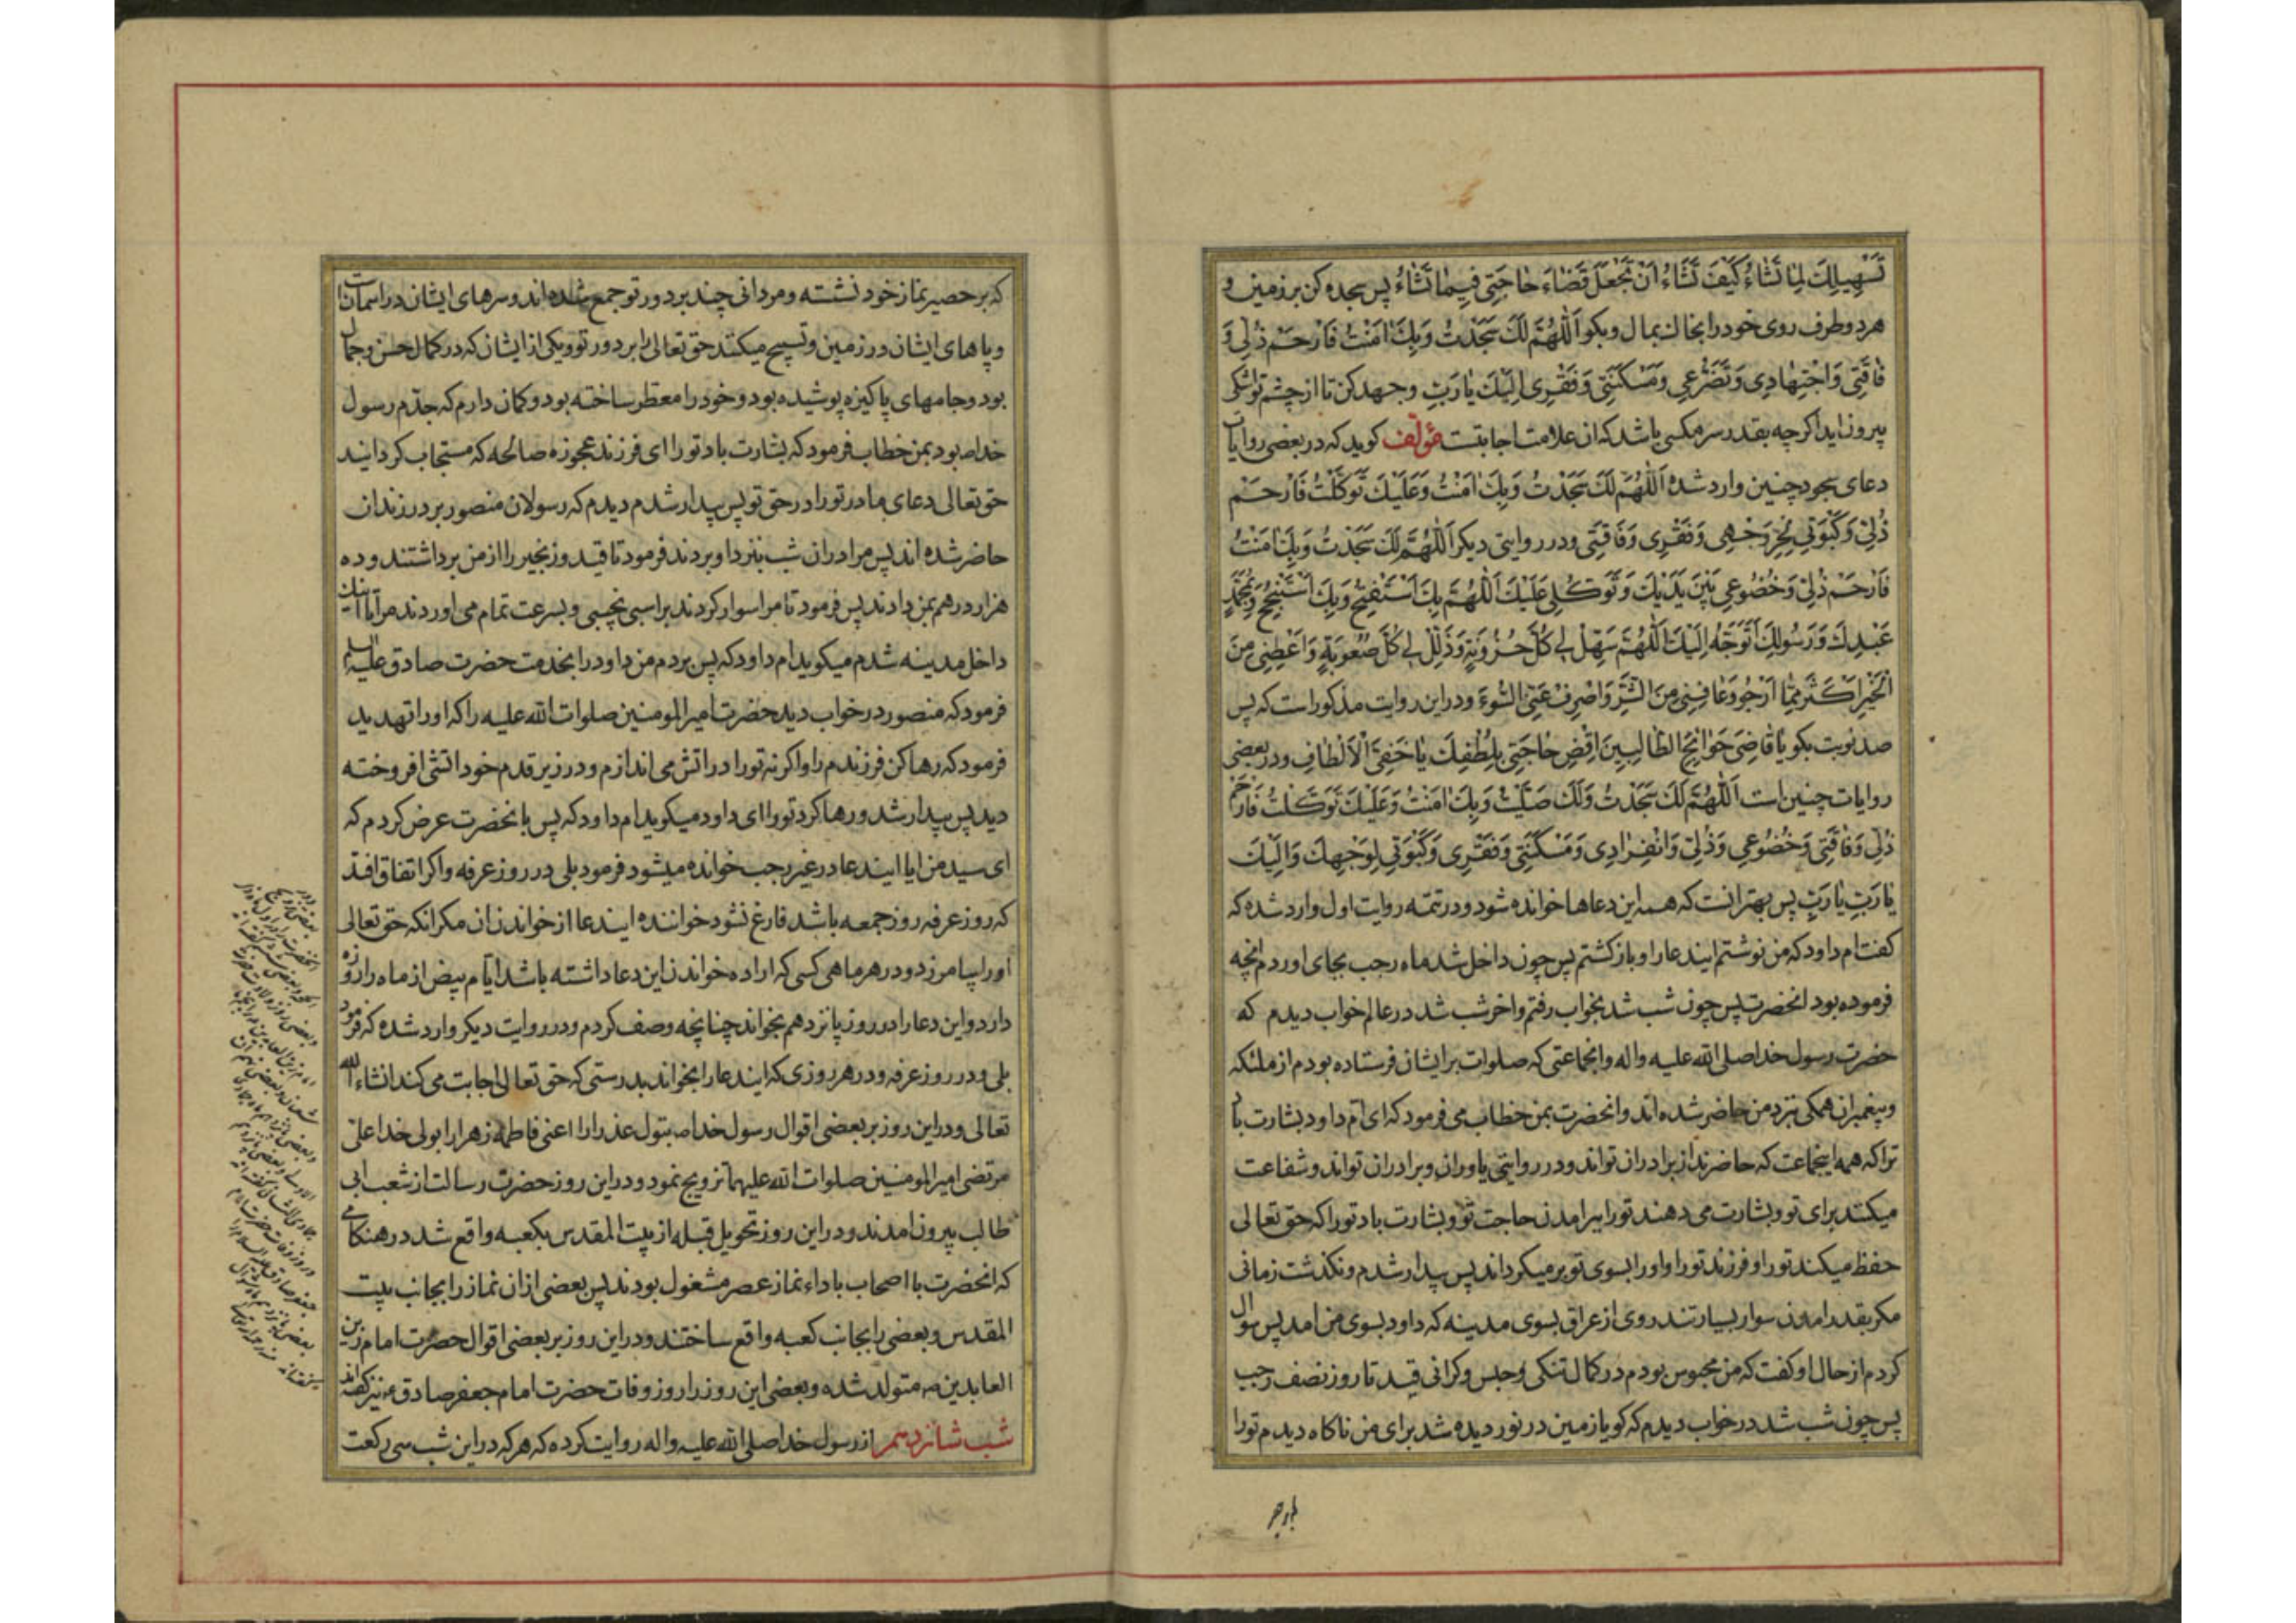 تَسْهِیلِكَ لِمَا تَشَاءُ كَیْفَ تَشَاءُ اَنْ تَجْعَلَ قَضَاءَ حَاجَتِی فِیمَا تَشَاءُ پس سجده کن بر زمین و
هر دو طرف روی خود را بخاك بمال و بکو اَللّٰهُمَّ لَكَ سَجَدْتُ وَبِكَ اٰمَنْتُ فَارْحَمْ ذُلِّی وَ
فَاقَتِی وَاجْتِهَادِی وَتَضَرُّعِی وَمَسْكَنَتِی وَفَقْرِی اِلَیْكَ یَا رَبِّ وجهد کن تا از چشم تو اشکی
بیرون اید اکرچه بقدر سر مکسی باشد که ان علامت اجابتست مؤلف کوید که در بعضی روایات
دعای سجود چنین وارد شده اَللّٰهُمَّ لَكَ سَجَدْتُ وَبِكَ اٰمَنْتُ وَعَلَیْكَ تَوَكَّلْتُ فَارْحَمْ
ذُلِّی وَكَبْوَتِی لِحُرِّ وَجْهِی وَفَقْرِی وَفَاقَتِی ودر روایتی دیکر اَللّٰهُمَّ لَكَ سَجَدْتُ وَبِكَ اٰمَنْتُ
فَارْحَمْ ذُلِّی وَخُضُوعِی بَیْنَ یَدَیْكَ وَتَوَكُّلِی عَلَیْكَ اَللّٰهُمَّ بِكَ اَسْتَفْتِحُ وَبِكَ اَسْتَنْجِحُ وَبِمُحَمَّدٍ
عَبْدِكَ وَرَسُولِكَ اَتَوَجَّهُ اِلَیْكَ اَللّٰهُمَّ سَهِّلْ لِی كُلَّ حُزُونَةٍ وَذَلِّلْ لِی كُلَّ صُعُوبَةٍ وَاَعْطِنِی مِنَ
الْخَیْرِ اَكْثَرَ مِمَّا اَرْجُو وَعَافِنِی مِنَ الشَّرِّ وَاصْرِفْ عَنِّی السُّوءَ ودر این روایت مذکور است که پس
صد نوبت بکو یَا قَاضِیَ حَوَائِجِ الطَّالِبِینَ اِقْضِ حَاجَتِی بِلُطْفِكَ یَا خَفِیَّ الْاَلْطَافِ ودر بعضی
روایات چنین است اَللّٰهُمَّ لَكَ سَجَدْتُ وَلَكَ صَلَّیْتُ وَبِكَ اٰمَنْتُ وَعَلَیْكَ تَوَكَّلْتُ فَارْحَمْ
ذُلِّی وَفَاقَتِی وَخُضُوعِی وَذُلِّی وَانْفِرَادِی وَمَسْكَنَتِی وَفَقْرِی وَكَبْوَتِی لِوَجْهِكَ وَاِلَیْكَ
یَا رَبِّ یَا رَبِّ پس بهتر انست که همه این دعاها خوانده شود ودر تتمه روایت اول وارد شده که
کفت ام داود که من نوشتم ایندعا را و باز کشتم پس چون داخل شد ماه رجب بجای اوردم انچه
فرموده بود انحضرت پس چون شب شد بخواب رفتم واخر شب شد در عالم خواب دیدم که
حضرت رسول خدا صلی الله علیه واله وانجماعتی که صلوات بر ایشان فرستاده بودم از ملئکه
وپیغمبران همکی نزد من حاضر شده اند وانحضرت بمن خطاب می فرمود که ای ام داود بشارت باد
ترا که همه اینجماعت که حاضرند از برادران تواند ودر روایتی یاوران وبرادران تواند وشفاعت
میکنند برای تو وبشارت می دهند تو را ببرامدن حاجت تو وبشارت باد تو را که حق تعالی
حفظ میکند تو را و فرزند تو را و او را بسوی تو بر میکرداند پس بیدار شدم ونکذشت زمانی
مکر بقدر امدن سوار بسیار تند روی از عراق بسوی مدینه که داود بسوی من امد پس سوال
کردم از حال او کفت که من محبوس بودم در کمال تنکی وحبس وکرانی قید تا روز نصف رجب
پس چون شب شد در خواب دیدم که کویا زمین در نور دیده شد برای من ناکاه دیدم تو را
که بر حصیر نماز خود نشسته ومردانی چند بر دور تو جمع شده اند وسرهای ایشان در اسمان
وپاهای ایشان در زمین وتسبیح میکنند حق تعالی را بر دور تو ویکی از ایشان که در کمال حسن وجمال
بود وجامهای پاکیزه پوشیده بود وخود را معطر ساخته بود وکمان دارم که جدم رسول
خدا ص بود بمن خطاب فرمود که بشارت باد تو را ای فرزند عجوزه صالحه که مستجاب کردانید
حق تعالی دعای مادر تو را در حق تو پس بیدار شدم دیدم که رسولان منصور بر در زندان
حاضر شده اند پس مرا در ان شب بنزد او بردند فرمود تا قید وزنجیر را از من برداشتند وده
هزار درهم بمن دادند پس فرمود تا مرا سوار کردند بر اسبی نجیبی وبسرعت تمام می اوردند مرا تا اینك
داخل مدینه شدم میکوید ام داود که پس بردم من داود را بخدمت حضرت صادق علیه السلم
فرمود که منصور در خواب دید حضرت امیر المومنین صلوات الله علیه را که او را تهدید
فرمود که رها کن فرزندم را واکر نه تو را در اتش می اندازم ودر زیر قدم خود اتشی افروخته
دید پس بیدار شد ورها کرد تو را ای داود میکوید ام داود که پس بانحضرت عرض کردم که
ای سید من ایا ایندعا در غیر رجب خوانده میشود فرمود بلی در روز عرفه واکر اتفاق افتد
که روز عرفه روز جمعه باشد فارغ نشود خواننده ایندعا از خواندن ان مکر انکه حق تعالی
او را بیامرزد ودر هر ماهی کسی که اراده خواندن این دعا داشته باشد ایام بیض از ماه را روزه
دارد واین دعا را در روز پانزدهم بخواند چنانچه وصف کردم ودر روایت دیکر وارد شده که فرمود
بلی ودر روز عرفه ودر هر روزی که ایندعا را بخواند بدرستی که حق تعالی اجابت می کند انشاء الله
تعالی ودر این روز بر بعضی اقوال رسول خدا ص بتول عذرا را اعنی فاطمه زهرا را بولی خدا علی
مرتضی امیر المومنین صلوات الله علیهما تزویج نمود ودر این روز حضرت رسالت از شعب ابی
طالب بیرون امدند ودر این روز تحویل قبله از بیت المقدس بکعبه واقع شد در هنکامی
که انحضرت با اصحاب باداء نماز عصر مشغول بودند پس بعضی از ان نماز را بجانب بیت
المقدس وبعضی را بجانب کعبه واقع ساختند ودر این روز بر بعضی اقوال حضرت امام زین
العابدین ع متولد شده وبعضی این روز را روز وفات حضرت امام جعفر صادق ع نیز کفته اند
شب شانزدهم از رسول خدا صلی الله علیه واله روایت کرده که هر که در این شب سی رکعت